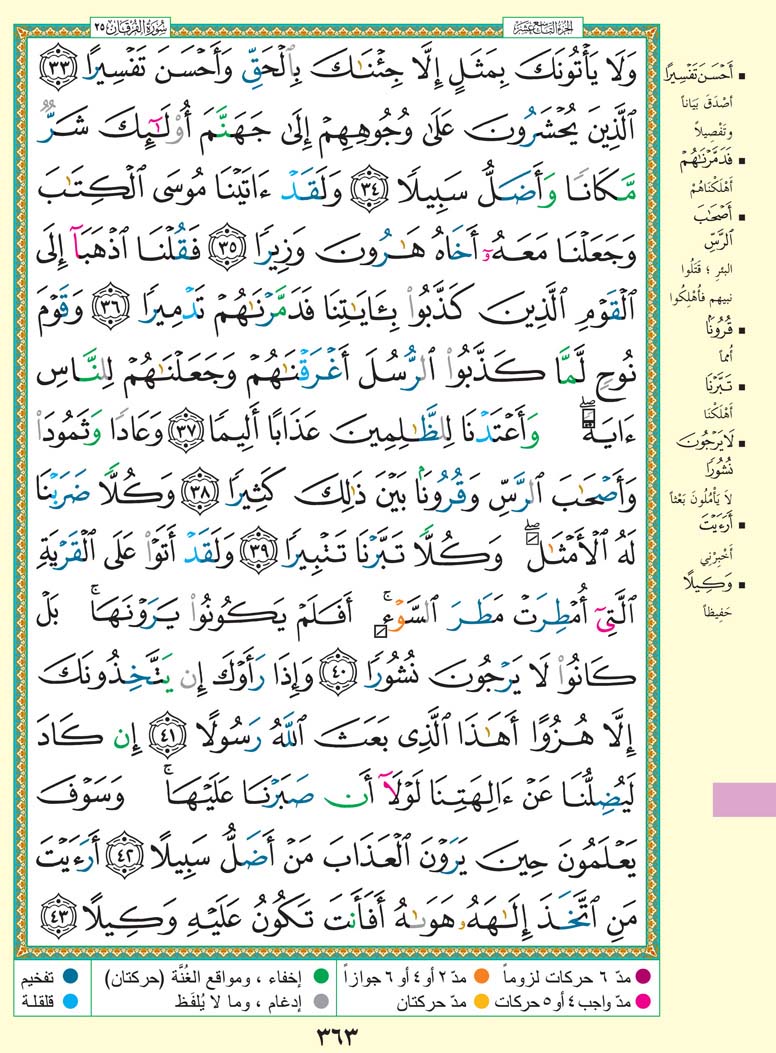 سُورَةُ الفُرْقَانِ ٢٥
الجُزْءُ التَّاسِعَ عَشَرَ
وَلَا يَأْتُونَكَ بِمَثَلٍ إِلَّا جِئْنَٰكَ بِٱلْحَقِّ وَأَحْسَنَ تَفْسِيرًا ٣٣
ٱلَّذِينَ يُحْشَرُونَ عَلَىٰ وُجُوهِهِمْ إِلَىٰ جَهَنَّمَ أُو۟لَٰٓئِكَ شَرٌّ
مَّكَانًا وَأَضَلُّ سَبِيلًا ٣٤ وَلَقَدْ ءَاتَيْنَا مُوسَى ٱلْكِتَٰبَ
وَجَعَلْنَا مَعَهُۥٓ أَخَاهُ هَٰرُونَ وَزِيرًا ٣٥ فَقُلْنَا ٱذْهَبَآ إِلَى
ٱلْقَوْمِ ٱلَّذِينَ كَذَّبُوا۟ بِـَٔايَٰتِنَا فَدَمَّرْنَٰهُمْ تَدْمِيرًا ٣٦ وَقَوْمَ
نُوحٍ لَّمَّا كَذَّبُوا۟ ٱلرُّسُلَ أَغْرَقْنَٰهُمْ وَجَعَلْنَٰهُمْ لِلنَّاسِ
ءَايَةً ۖ وَأَعْتَدْنَا لِلظَّٰلِمِينَ عَذَابًا أَلِيمًا ٣٧ وَعَادًا وَثَمُودَا۟
وَأَصْحَٰبَ ٱلرَّسِّ وَقُرُونًۢا بَيْنَ ذَٰلِكَ كَثِيرًا ٣٨ وَكُلًّا ضَرَبْنَا
لَهُ ٱلْأَمْثَٰلَ ۖ وَكُلًّا تَبَّرْنَا تَتْبِيرًا ٣٩ وَلَقَدْ أَتَوْا۟ عَلَى ٱلْقَرْيَةِ
ٱلَّتِىٓ أُمْطِرَتْ مَطَرَ ٱلسَّوْءِ ۚ أَفَلَمْ يَكُونُوا۟ يَرَوْنَهَا ۚ بَلْ
كَانُوا۟ لَا يَرْجُونَ نُشُورًا ٤٠ وَإِذَا رَأَوْكَ إِن يَتَّخِذُونَكَ
إِلَّا هُزُوًا أَهَٰذَا ٱلَّذِى بَعَثَ ٱللَّهُ رَسُولًا ٤١ إِن كَادَ
لَيُضِلُّنَا عَنْ ءَالِهَتِنَا لَوْلَآ أَن صَبَرْنَا عَلَيْهَا ۚ وَسَوْفَ
يَعْلَمُونَ حِينَ يَرَوْنَ ٱلْعَذَابَ مَنْ أَضَلُّ سَبِيلًا ٤٢ أَرَءَيْتَ
مَنِ ٱتَّخَذَ إِلَٰهَهُۥ هَوَىٰهُ أَفَأَنتَ تَكُونُ عَلَيْهِ وَكِيلًا ٤٣
▪ أَحْسَنَ تَفْسِيرًا
أَصْدَقَ بَيَاناً
وتَفْصِيلاً
▪ فَدَمَّرْنَٰهُمْ
أَهْلَكْنَاهُمْ
▪ أَصْحَٰبَ
ٱلرَّسِّ
البئرِ ؛ قَتَلُوا
نبيهم فأُهْلِكُوا
▪ قُرُونًا
أُمماً
▪ تَبَّرْنَا
أَهْلَكْنَا
▪ لَا يَرْجُونَ
نُشُورًا
لا يَأْمُلُونَ بَعْثاً
▪ أَرَءَيْتَ
أَخْبِرْنِي
▪ وَكِيلًا
حَفِيظاً
مدّ ٦ حركات لزوماً
مدّ ٢ أو ٤ أو ٦ جوازاً
إخفاء ، ومواقع الغُنَّة (حركتان)
تفخيم
مدّ واجب ٤ أو ٥ حركات
مدّ حركتان
إدغام ، وما لا يُلفَظ
قلقلة
٣٦٣